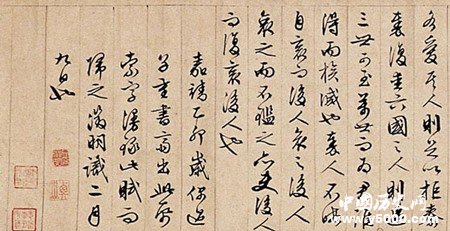 各愛其人則足以拒秦
秦復愛六國之人則
三世可至萬世而為君
得而族滅也秦人不暇
自哀而後人哀之後人
哀之而不鑑之亦使後人
而復哀後人也
嘉靖乙卯歲偶過
子重書齋出此紙
索字漫録此賦而
歸之 明識二月
九日也
中国历史网
www.y5000.com